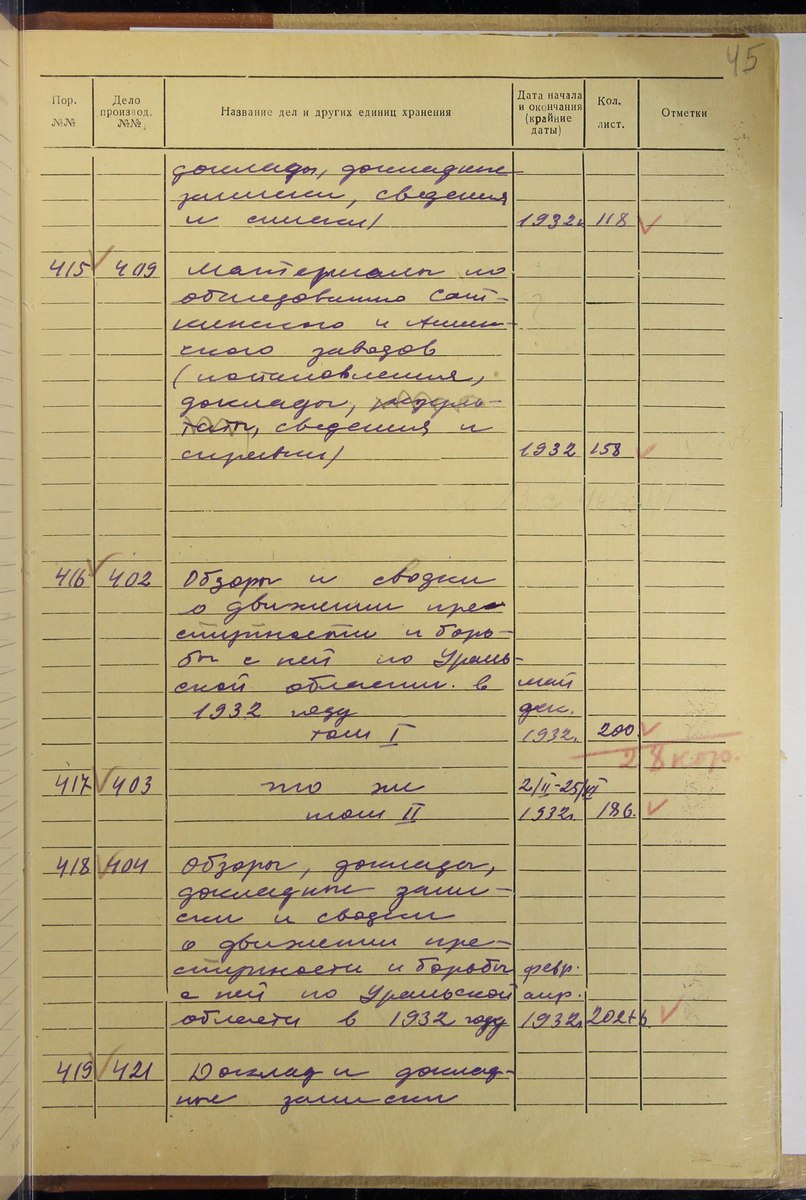 45
Пор. №№
Дело производ. №№
Название дел и других единиц хранения
Дата начала и окончания (крайние даты)
Кол. лист.
Отметки
доклады, докладные
записки, сведения
и списки) 1932г. 118
415 409 Материалы по
обследованию Сат-
кинского и Ашин-
ского заводов
(постановления,
доклады, резуль-
таты, сведения и
справки) 1932 158
416 402 Обзоры и сводки
о движении пре-
ступности и борь-
бы с ней по Ураль-
ской области в май
1932 году дек.
том I 1932г. 200
28 кор.
417 403 то же 2/II-25/VI
том II 1932г. 186.
418 404 Обзоры, доклады,
докладные запи-
ски и сводки
о движении пре-
ступности и борьбы февр.
с ней по Уральской апр.
области в 1932 году 1932г. 202+6
419 421 Доклад и доклад-
ные записки